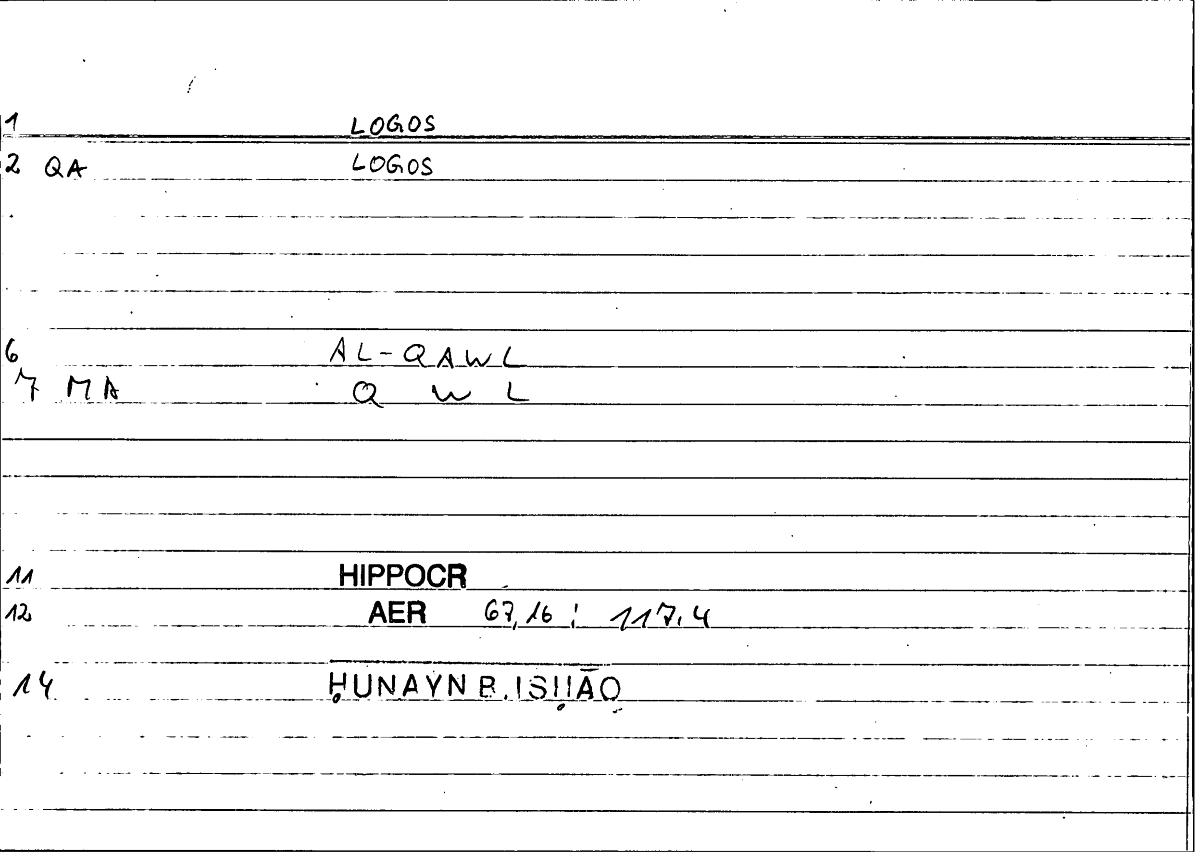 1 LOGOS
2 QA LOGOS
6 AL-QAWL
7 MA Q W L
11 HIPPOCR
12 AER 67,16 ; 117.4
14 ḤUNAYN B. ISḤĀQ